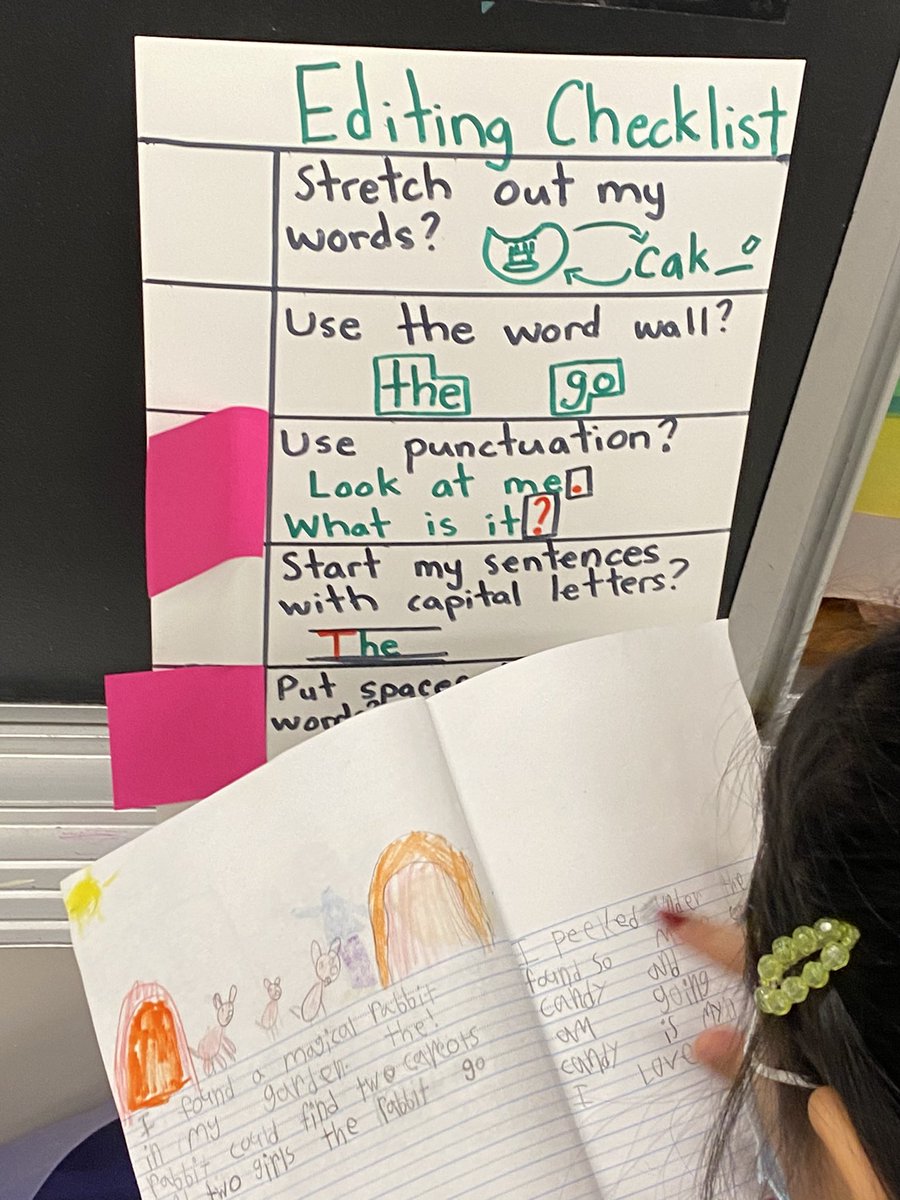 Editing Checklist
Stretch out my
words?
cak_
Use the word wall?
the go
Use punctuation?
Look at me.
What is it?
Start my sentences
with capital letters?
The
Put space
word
I found a magical rabbit
in my garden. the!
rabbit could find two carrots
two girls the rabbit go
I peeked under the
found so
candy and
am going
candy is my
I Love